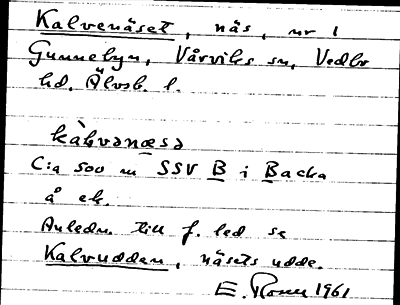 Kalvenäset, näs, nr 1
Gunnebyn, Vårviks sn, Vedbo
hd. Älvsb. l.
kàlvənæsə
C:a 500 m SSV B i Backa
å ek.
Anledn. till f. led se
Kalvudden, näsets udde.
E. Rosen 1961